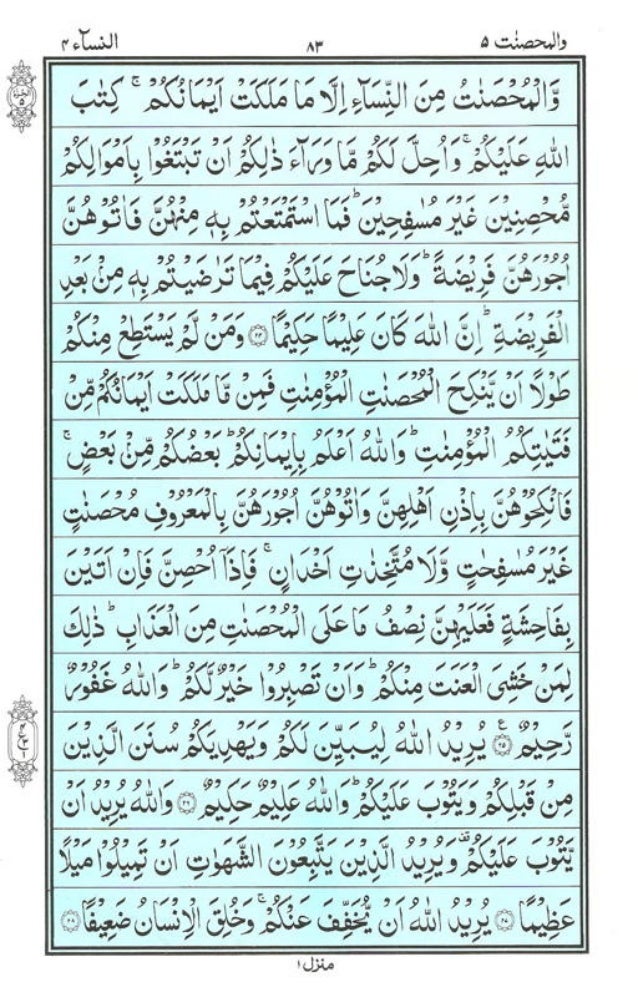 والمحصنت ۵ ۸۳ النسآء ۴
الجزء ۵
وَّالْمُحْصَنٰتُ مِنَ النِّسَآءِ اِلَّا مَا مَلَكَتْ اَيْمَانُكُمْ ۚ كِتٰبَ
اللّٰهِ عَلَيْكُمْ ۚ وَاُحِلَّ لَكُمْ مَّا وَرَآءَ ذٰلِكُمْ اَنْ تَبْتَغُوْا بِاَمْوَالِكُمْ
مُّحْصِنِيْنَ غَيْرَ مُسٰفِحِيْنَ ؕ فَمَا اسْتَمْتَعْتُمْ بِهٖ مِنْهُنَّ فَاٰتُوْهُنَّ
اُجُوْرَهُنَّ فَرِيْضَةً ؕ وَلَا جُنَاحَ عَلَيْكُمْ فِيْمَا تَرٰضَيْتُمْ بِهٖ مِنْۢ بَعْدِ
الْفَرِيْضَةِ ؕ اِنَّ اللّٰهَ كَانَ عَلِيْمًا حَكِيْمًا ۲۴ وَمَنْ لَّمْ يَسْتَطِعْ مِنْكُمْ
طَوْلًا اَنْ يَّنْكِحَ الْمُحْصَنٰتِ الْمُؤْمِنٰتِ فَمِنْ مَّا مَلَكَتْ اَيْمَانُكُمْ مِّنْ
فَتَيٰتِكُمُ الْمُؤْمِنٰتِ ؕ وَاللّٰهُ اَعْلَمُ بِاِيْمَانِكُمْ ؕ بَعْضُكُمْ مِّنْۢ بَعْضٍ ۚ
فَانْكِحُوْهُنَّ بِاِذْنِ اَهْلِهِنَّ وَاٰتُوْهُنَّ اُجُوْرَهُنَّ بِالْمَعْرُوْفِ مُحْصَنٰتٍ
غَيْرَ مُسٰفِحٰتٍ وَّلَا مُتَّخِذٰتِ اَخْدَانٍ ۚ فَاِذَاۤ اُحْصِنَّ فَاِنْ اَتَيْنَ
بِفَاحِشَةٍ فَعَلَيْهِنَّ نِصْفُ مَا عَلَى الْمُحْصَنٰتِ مِنَ الْعَذَابِ ؕ ذٰلِكَ
لِمَنْ خَشِيَ الْعَنَتَ مِنْكُمْ ؕ وَاَنْ تَصْبِرُوْا خَيْرٌ لَّكُمْ ؕ وَاللّٰهُ غَفُوْرٌ
رَّحِيْمٌ ۲۵ ع يُرِيْدُ اللّٰهُ لِيُبَيِّنَ لَكُمْ وَيَهْدِيَكُمْ سُنَنَ الَّذِيْنَ
مِنْ قَبْلِكُمْ وَيَتُوْبَ عَلَيْكُمْ ؕ وَاللّٰهُ عَلِيْمٌ حَكِيْمٌ ۲۶ وَاللّٰهُ يُرِيْدُ اَنْ
يَّتُوْبَ عَلَيْكُمْ ۟ وَيُرِيْدُ الَّذِيْنَ يَتَّبِعُوْنَ الشَّهَوٰتِ اَنْ تَمِيْلُوْا مَيْلًا
عَظِيْمًا ۲۷ يُرِيْدُ اللّٰهُ اَنْ يُّخَفِّفَ عَنْكُمْ ۚ وَخُلِقَ الْاِنْسَانُ ضَعِيْفًا ۲۸
منزل ۱